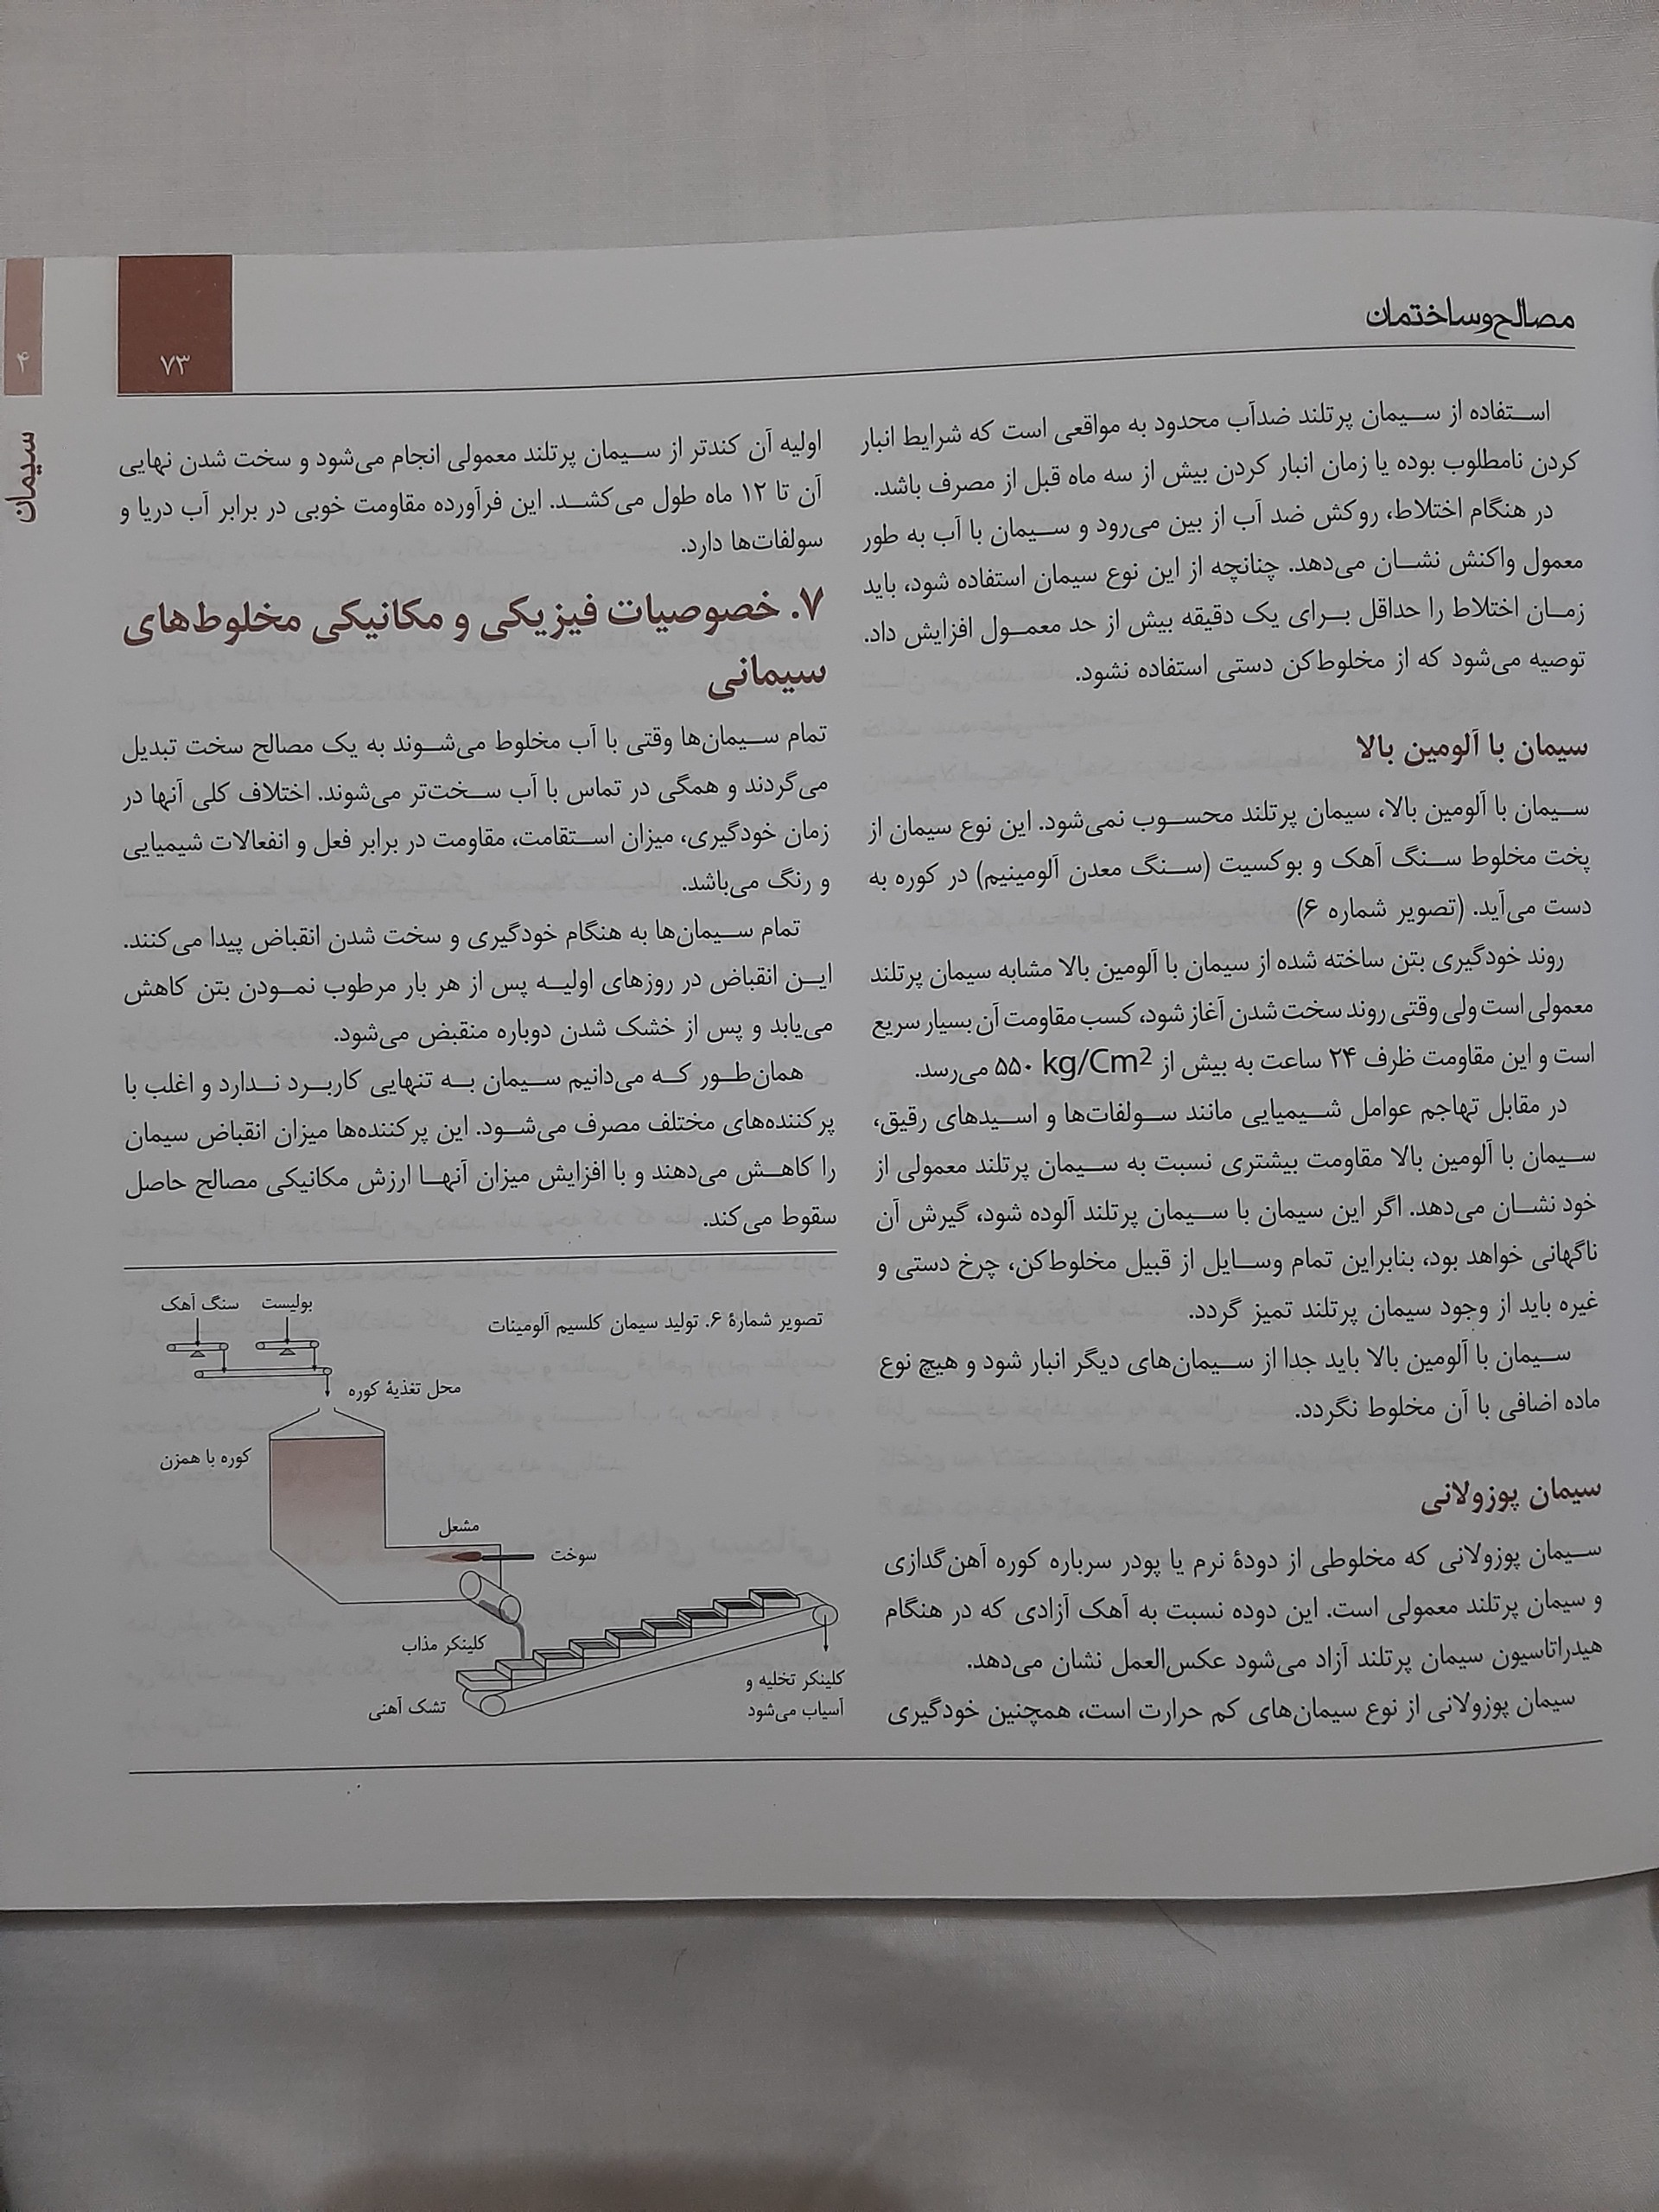 مصالح‌وساختمان
۷۳
۴
سیمان
استفاده از سیمان پرتلند ضدآب محدود به مواقعی است که شرایط انبار
کردن نامطلوب بوده یا زمان انبار کردن بیش از سه ماه قبل از مصرف باشد.
در هنگام اختلاط، روکش ضد آب از بین می‌رود و سیمان با آب به طور
معمول واکنش نشان می‌دهد. چنانچه از این نوع سیمان استفاده شود، باید
زمان اختلاط را حداقل برای یک دقیقه بیش از حد معمول افزایش داد.
توصیه می‌شود که از مخلوط‌کن دستی استفاده نشود.
سیمان با آلومین بالا
سیمان با آلومین بالا، سیمان پرتلند محسوب نمی‌شود. این نوع سیمان از
پخت مخلوط سنگ آهک و بوکسیت (سنگ معدن آلومینیم) در کوره به
دست می‌آید. (تصویر شماره ۶)
روند خودگیری بتن ساخته شده از سیمان با آلومین بالا مشابه سیمان پرتلند
معمولی است ولی وقتی روند سخت شدن آغاز شود، کسب مقاومت آن بسیار سریع
است و این مقاومت ظرف ۲۴ ساعت به بیش از ۵۵۰ kg/Cm2 می‌رسد.
در مقابل تهاجم عوامل شیمیایی مانند سولفات‌ها و اسیدهای رقیق،
سیمان با آلومین بالا مقاومت بیشتری نسبت به سیمان پرتلند معمولی از
خود نشان می‌دهد. اگر این سیمان با سیمان پرتلند آلوده شود، گیرش آن
ناگهانی خواهد بود، بنابراین تمام وسایل از قبیل مخلوط‌کن، چرخ دستی و
غیره باید از وجود سیمان پرتلند تمیز گردد.
سیمان با آلومین بالا باید جدا از سیمان‌های دیگر انبار شود و هیچ نوع
ماده اضافی با آن مخلوط نگردد.
سیمان پوزولانی
سیمان پوزولانی که مخلوطی از دودهٔ نرم یا پودر سرباره کوره آهن‌گدازی
و سیمان پرتلند معمولی است. این دوده نسبت به آهک آزادی که در هنگام
هیدراتاسیون سیمان پرتلند آزاد می‌شود عکس‌العمل نشان می‌دهد.
سیمان پوزولانی از نوع سیمان‌های کم حرارت است، همچنین خودگیری
اولیه آن کندتر از سیمان پرتلند معمولی انجام می‌شود و سخت شدن نهایی
آن تا ۱۲ ماه طول می‌کشد. این فرآورده مقاومت خوبی در برابر آب دریا و
سولفات‌ها دارد.
۷. خصوصیات فیزیکی و مکانیکی مخلوط‌های
سیمانی
تمام سیمان‌ها وقتی با آب مخلوط می‌شوند به یک مصالح سخت تبدیل
می‌گردند و همگی در تماس با آب سخت‌تر می‌شوند. اختلاف کلی آنها در
زمان خودگیری، میزان استقامت، مقاومت در برابر فعل و انفعالات شیمیایی
و رنگ می‌باشد.
تمام سیمان‌ها به هنگام خودگیری و سخت شدن انقباض پیدا می‌کنند.
این انقباض در روزهای اولیه پس از هر بار مرطوب نمودن بتن کاهش
می‌یابد و پس از خشک شدن دوباره منقبض می‌شود.
همان‌طور که می‌دانیم سیمان به تنهایی کاربرد ندارد و اغلب با
پرکننده‌های مختلف مصرف می‌شود. این پرکننده‌ها میزان انقباض سیمان
را کاهش می‌دهند و با افزایش میزان آنها ارزش مکانیکی مصالح حاصل
سقوط می‌کند.
تصویر شمارهٔ ۶. تولید سیمان کلسیم آلومینات
بولیست
سنگ آهک
محل تغذیهٔ کوره
کوره با همزن
مشعل
سوخت
کلینکر مذاب
تشک آهنی
کلینکر تخلیه و
آسیاب می‌شود